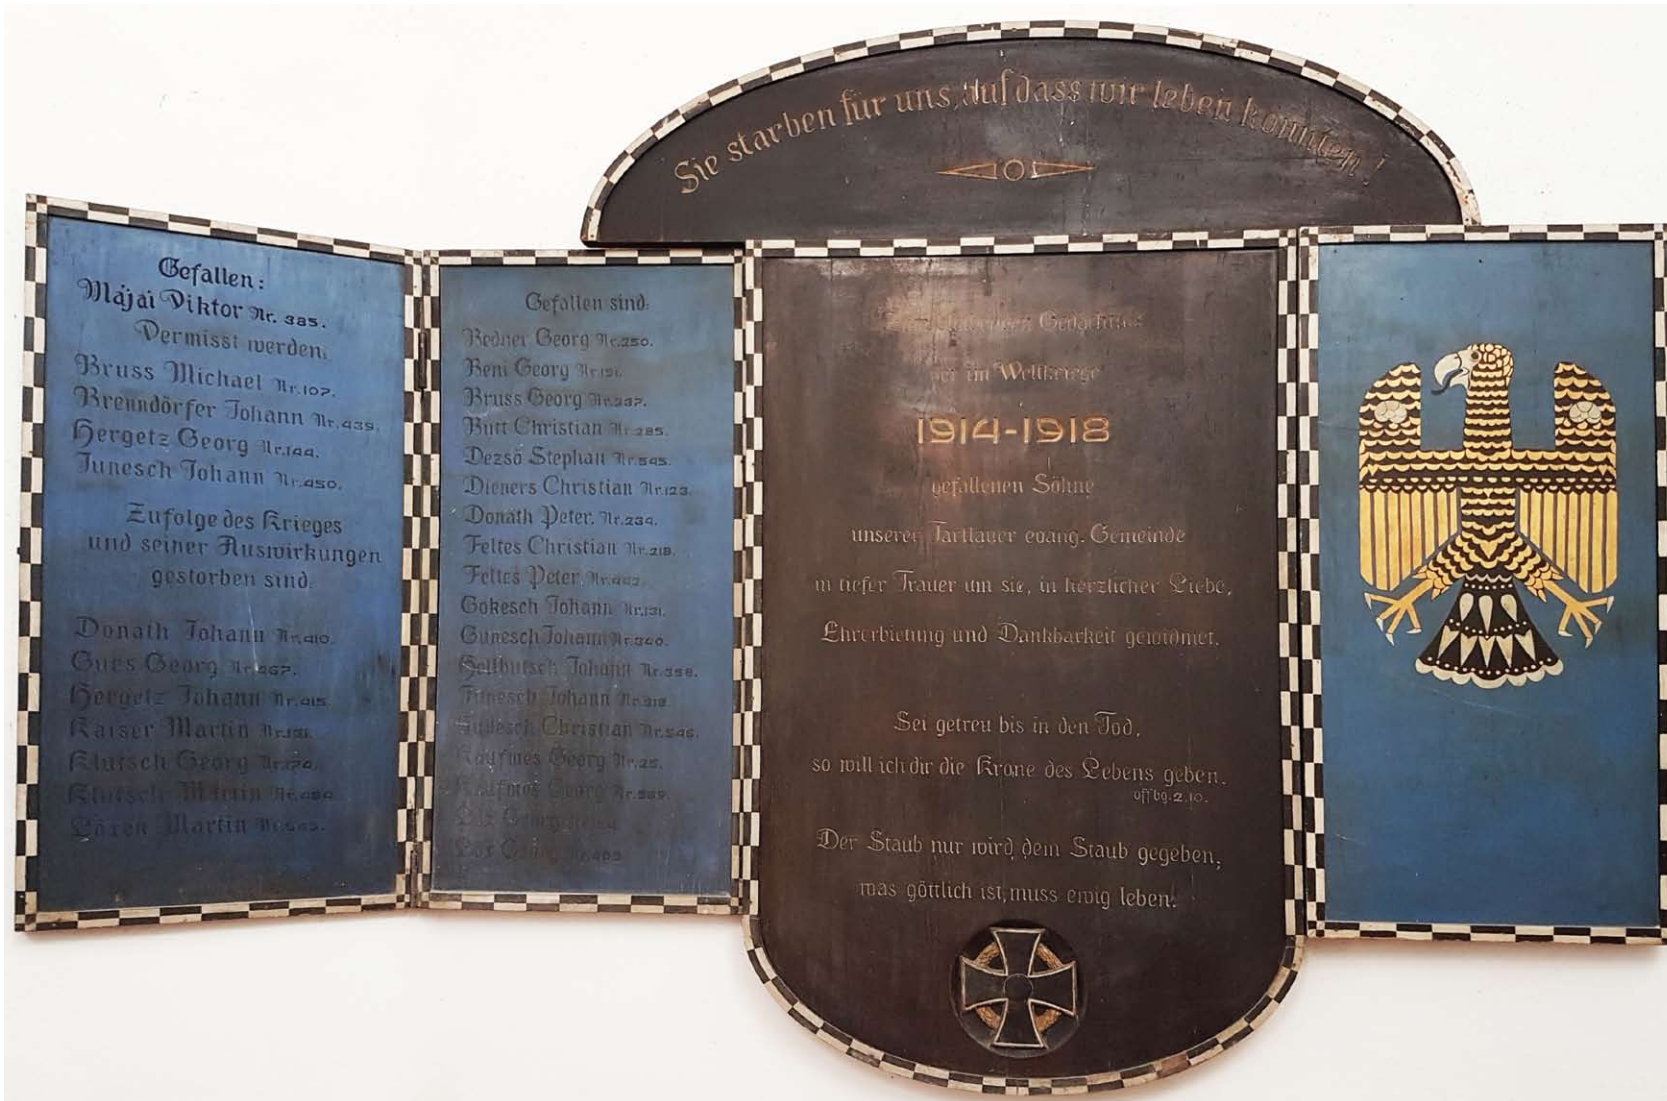 Sie starben für uns, auf dass wir leben konnten!
Gefallen:
Májái Viktor Nr. 385.
Vermisst werden:
Bruss Michael Nr. 107.
Brenndörfer Johann Nr. 439.
Hergetz Georg Nr. 144.
Junesch Johann Nr. 450.
Zufolge des Krieges
und seiner Auswirkungen
gestorben sind:
Donath Johann Nr. 410.
Georg
Hergetz Johann Nr. 415.
Kaiser Martin
Klutsch Georg Nr. 174.
Klutsch Martin
Martin
Gefallen sind:
Georg Nr. 250.
Beni Georg
Bruss Georg
Butt Christian Nr. 285.
Dezsö Stephan Nr. 545.
Dieners Christian Nr. 123.
Donath Peter. Nr. 234.
Feltes Christian Nr. 218.
Feltes Peter.
Gokesch Johann Nr. 131.
Gunesch Johann Nr. 340.
Johann Nr. 358.
Junesch Johann
Christian
Kaufmes Georg Nr. 25.
Kaufmes Georg Nr. 589.
Georg
im Weltkriege
1914-1918
gefallenen Söhne
unserer Tartlauer evang. Gemeinde
in tiefer Trauer um sie, in herzlicher Liebe,
Ehrerbietung und Dankbarkeit gewidmet.
Sei getreu bis in den Tod,
so will ich dir die Krone des Lebens geben.
Offbg. 2.10.
Der Staub nur wird dem Staub gegeben,
was göttlich ist, muss ewig leben!